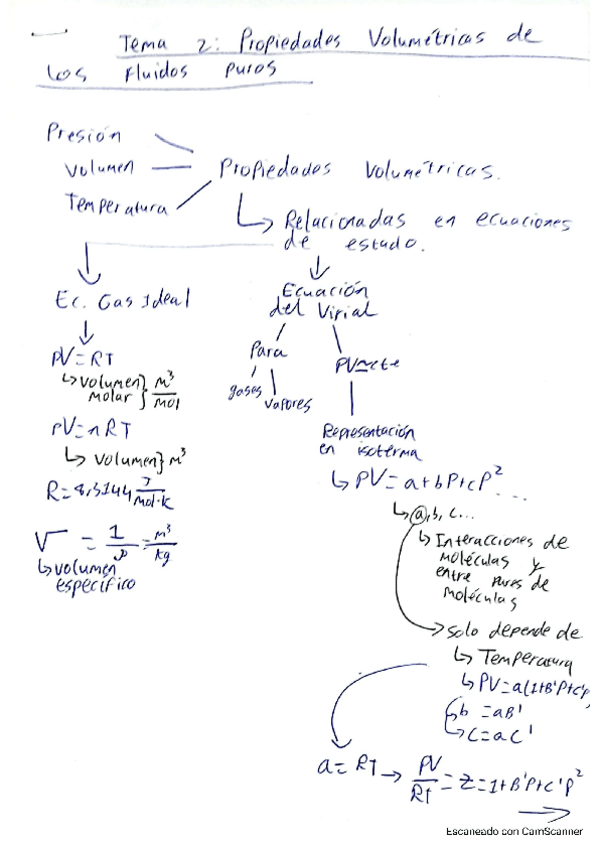 Tema 2: Propiedades Volumétricas de
los Fluidos puros
Presión
Volumen
Temperatura
Propiedades Volumétricas.
Relacionadas en ecuaciones
de estado.
Ec. Gas Ideal
PV=RT
↳volumen} m³/mol
molar
PV=nRT
↳ volumen} m³
R=8,3144 J/mol·K
V = 1/ρ = m³/kg
↳volumen
específico
Ecuación
del Virial
Para
gases
vapores
PV≃cte
Representación
en isoterma
↳ PV=a+bP+cP² ...
↳ a, b, c...
↳ Interacciones de
moléculas y
entre pares de
moléculas
solo depende de
↳ Temperatura
↳ PV=a(1+B'P+C'P
b =aB'
c=aC'
a=RT→ PV/RT =Z=1+B'P+C'P²
Escaneado con CamScanner